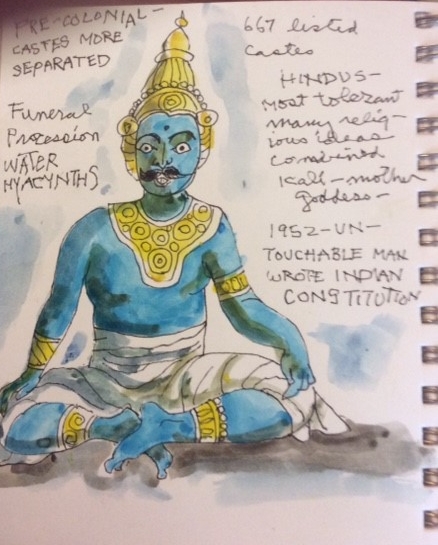 PRE-COLONIAL-
CASTES MORE
SEPARATED
Funeral
Procession
WATER
HYACYNTHS
667 listed
Castes
HINDUS-
Most tolerant
many relig-
ious ideas
Combined
Kali-mother
goddess-
1952-UN-
TOUCHABLE MAN
WROTE INDIAN
CONSTITUTION